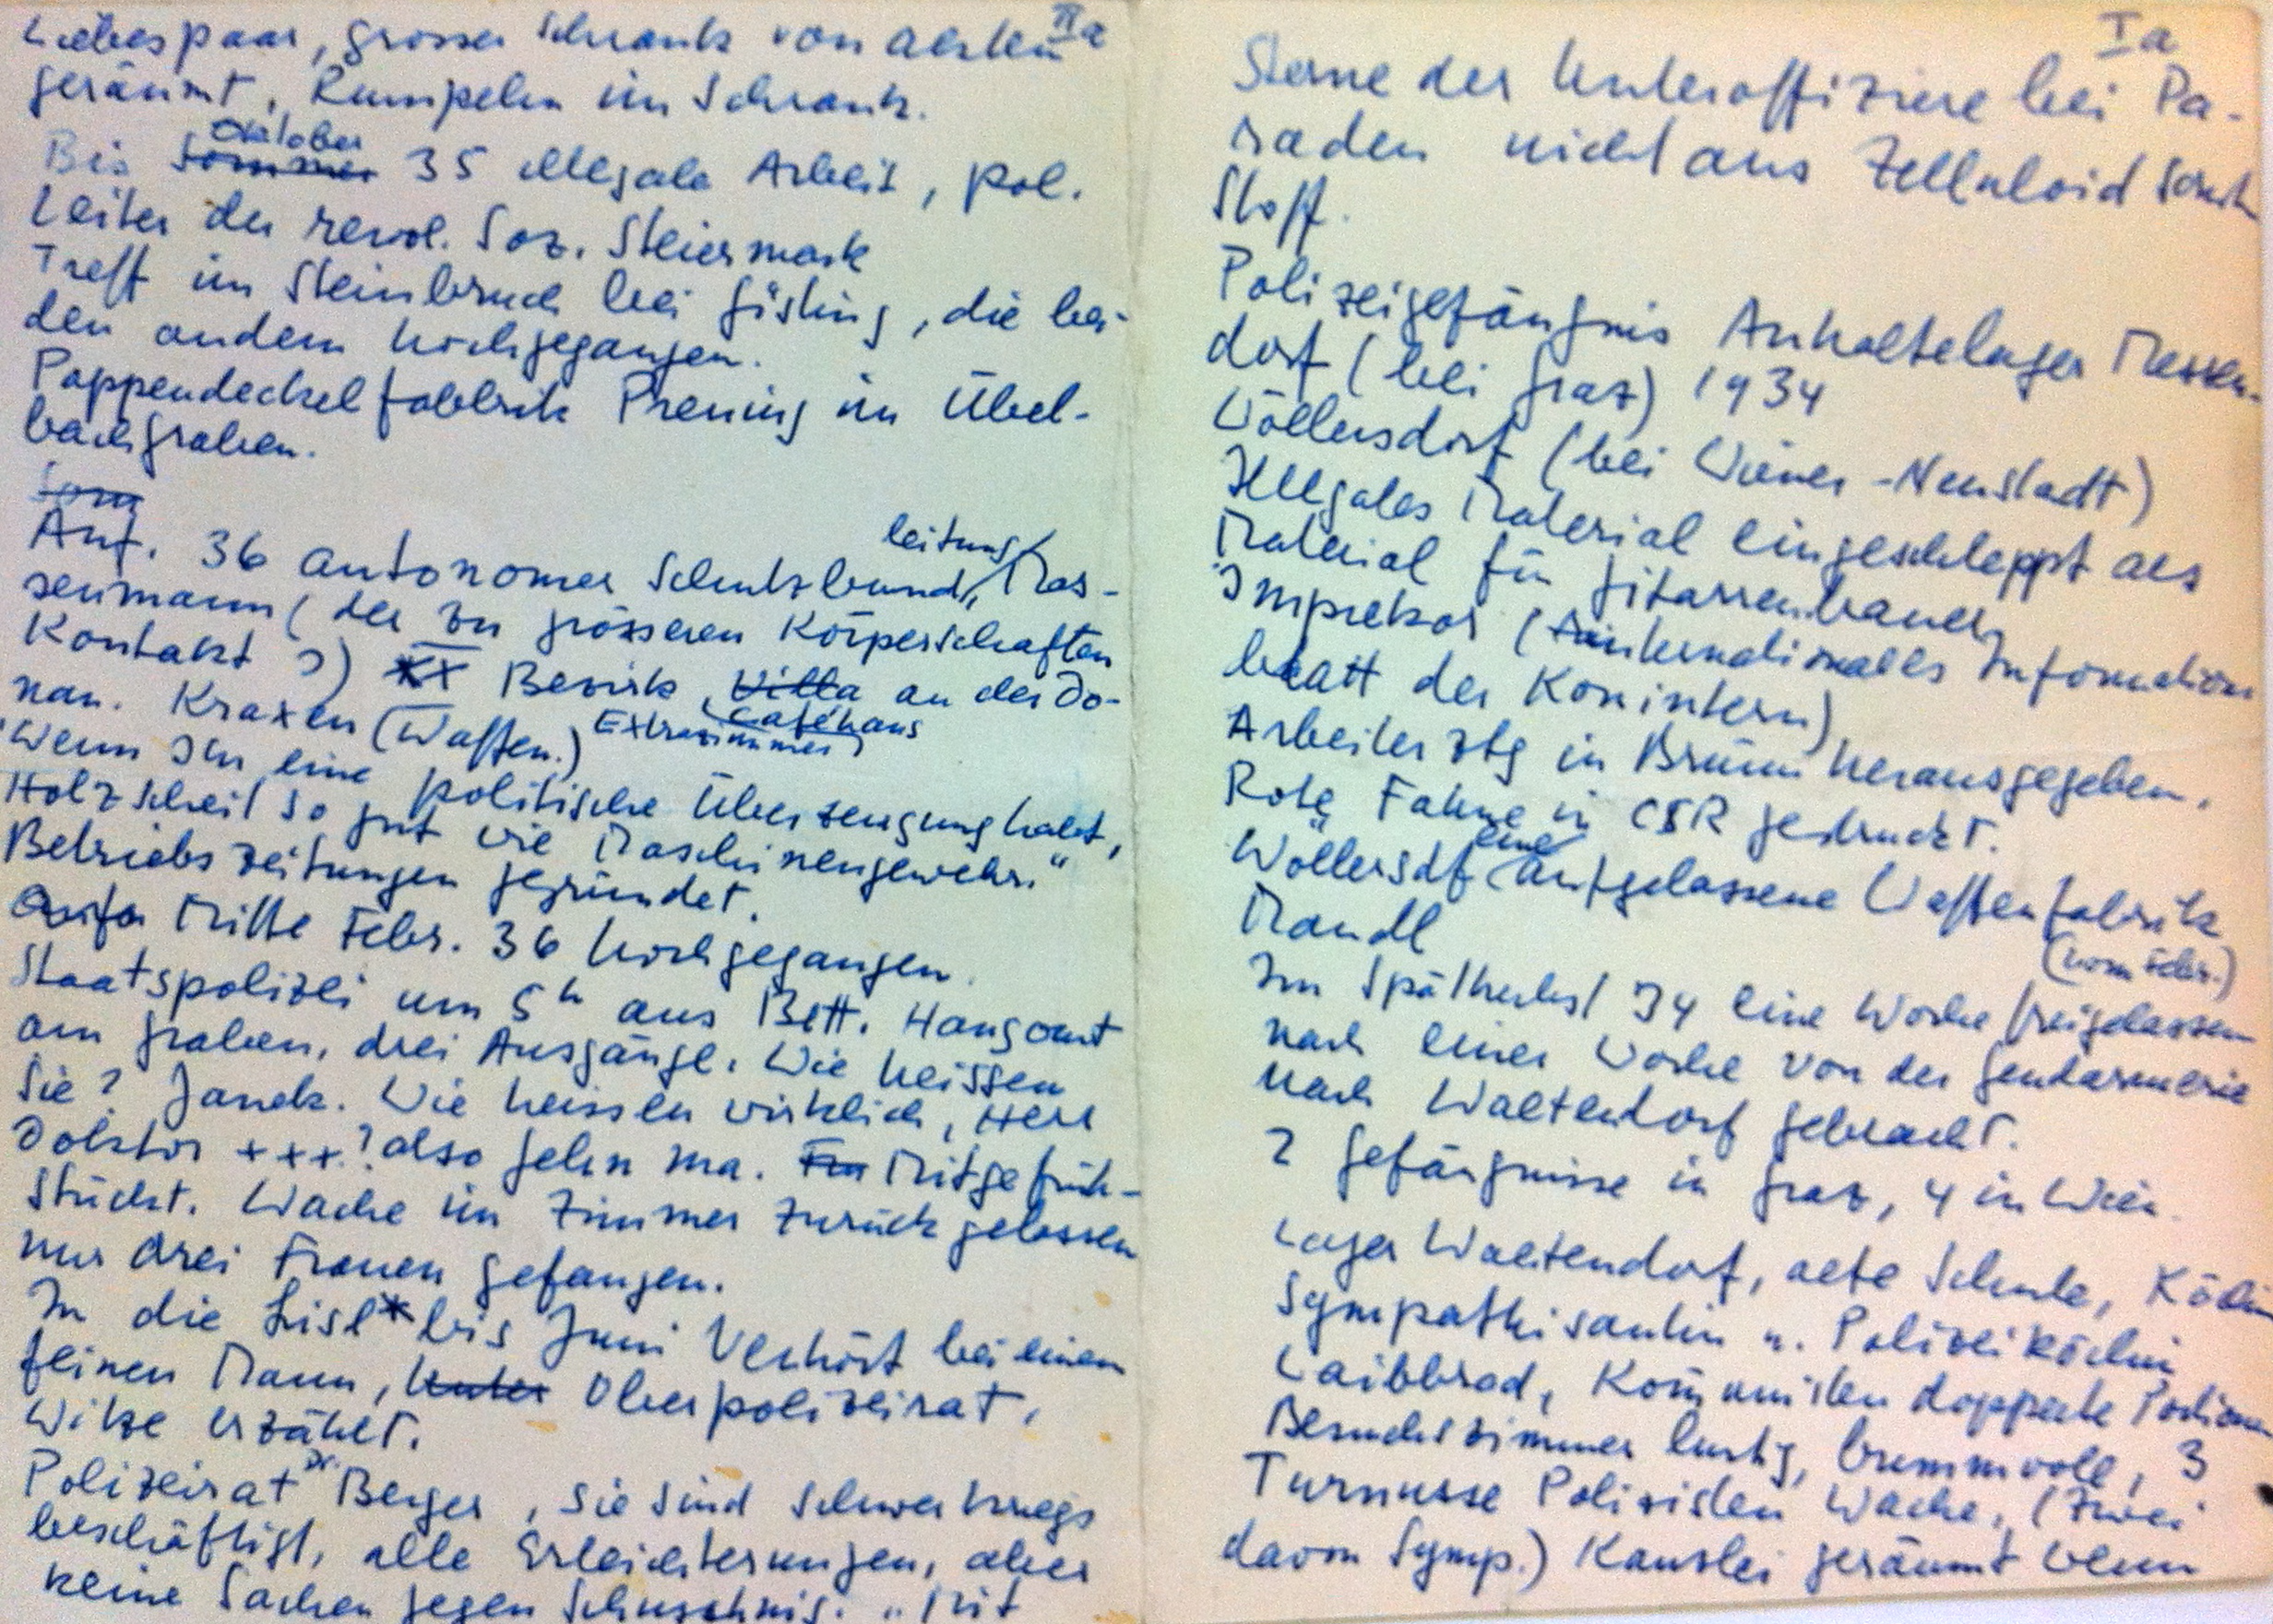 IIa
Liebespaar, grosser Schrank von Akten
geräumt, Rumpeln im Schrank.
Oktober
Bis Sommer 35 illegale Arbeit, pol.
Leiter der revol. Soz. Steiermark
Treff im Steinbruch bei Gösting, die bei-
den andern hochgegangen.
Pappendeckelfabbrik Prening im Übel-
bachgraben.
Som
leitung
Anf. 36 autonomer Schutzbund, Mas-
senmann (der zu grösseren Körperschaften
Kontakt?) XX Bezirk, Villa an der Do-
nau. Kraxen (Waffen.) Extrazimmer
Caféhaus
"Wenn Ihr eine politische Überzeugung habt,
Holzscheit so gut wie Maschinengewehr."
Betriebszeitungen gegründet.
Mitte Febr. 36 hochgegangen.
Staatspolizei um 5h aus Bett.
am Graben, drei Ausgänge. Wie heissen
Sie? Janek. Wie heissen wirklich, Herr
Doktor +++? also gehn ma. Mitgefrüh-
stückt. Wache im Zimmer zurückgelassen
nur drei Frauen gefangen.
In die Lisl* bis Juni Verhört bei einem
feinen Mann, Unter Oberpolizeirat,
Witze erzählt.
Polizeirat Dr. Berger, Sie sind schwer kriegs
beschäftigt, alle Erleichterungen, aber
keine Sachen gegen Schuschnig. "Mit
Ia
Sterne der Unteroffiziere bei Pa-
raden nicht aus Zelluloid sond
Stoff.
Polizeigefängnis Anhaltelager Messen-
dorf (bei Graz) 1934
Wöllersdorf (bei Wiener-Neustadt)
Illegales Material eingeschleppt als
Material für Gitarrenbauer,
Imprekor (internationales Information
blatt der Komintern)
Arbeiterztg in Brünn herausgegeben.
Rote Fahne in CSR gedruckt.
eine
Wöllersdf aufgelassene Waffenfabrik
Mandl
(vom Febr.)
Im Spätherbst 34 eine Woche freigelassen
nach einer Woche von der Gendarmerie
nach Waltendorf gebracht.
2 Gefängnisse in Graz, 4 in Wien.
Lager Waltendorf, alte Schule, Köchin
Sympathisantin u. Polizeiköchin
Laibbrod, Kommunisten doppelte Portionen
Besuchszimmer lustig, brummvoll, 3
Turnusse Polizisten Wache, (zwei
davon Symp.) Kanzlei geräumt wenn